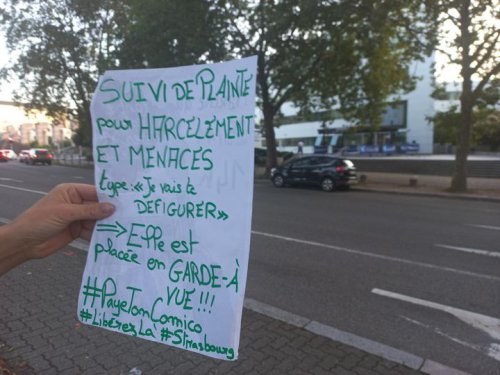 SUIVI DE PLAINTE
pour HARCÈLEMENT
ET MENACES
type : « Je vais te
DÉFIGURER »
⇒ Elle est
placée en GARDE-À
VUE !!!
#PayeTonComico
#LibérezLà #Strasbourg